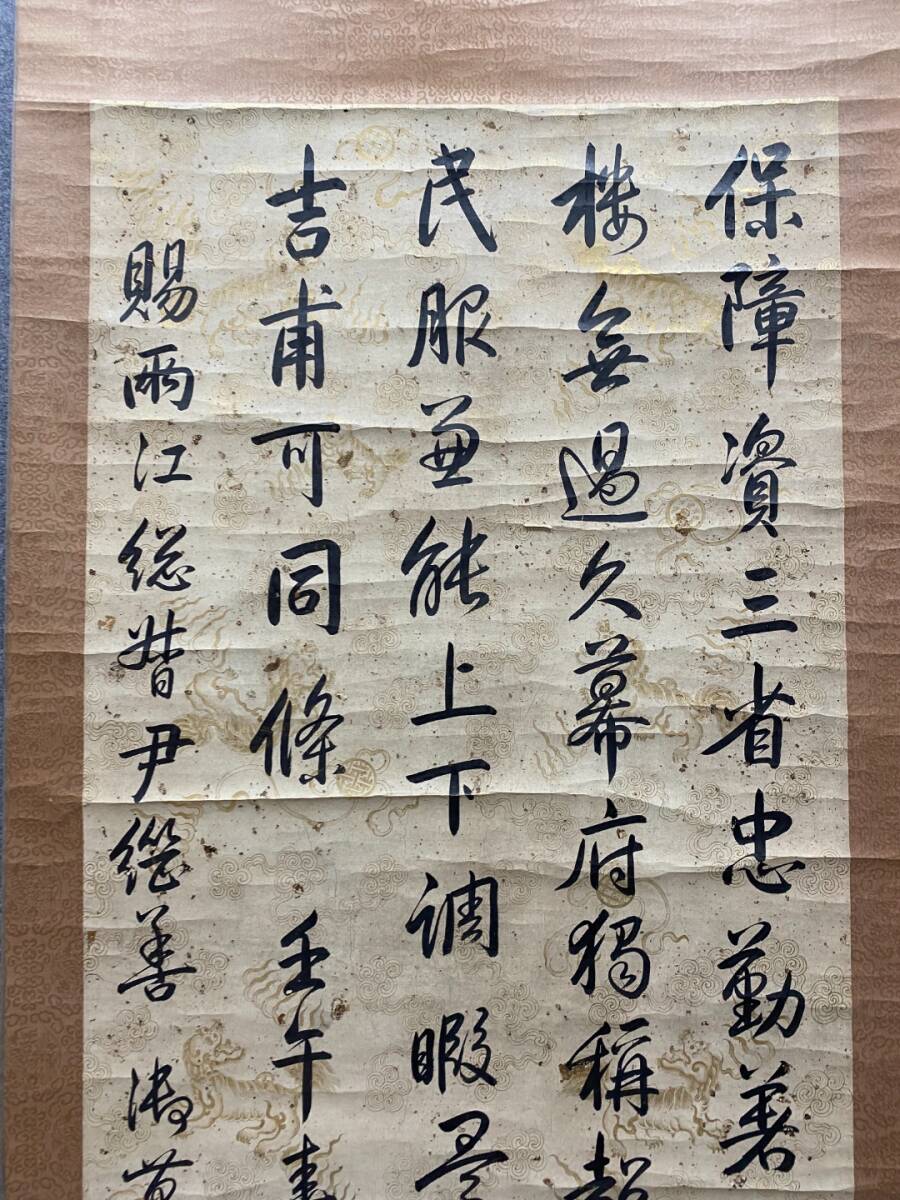 保障資三省忠勤著
樓無過久幕府獨稱超
民服兼能上下調暇
吉甫可同條 壬午春
賜兩江総督尹繼善 御